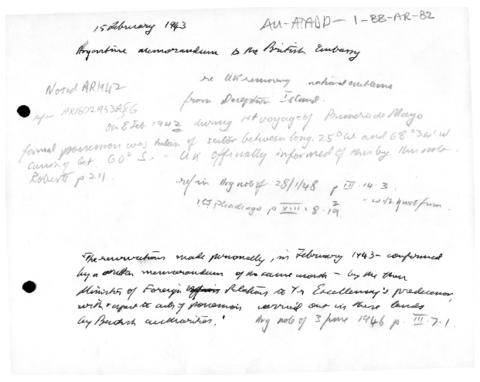 15 February 1943 AU-ATADD-1-BB-AR-82
Argentine memorandum to the British Embassy
Noted ARM42 re UK removing national emblems
from Deception Island.
on 8 Feb 1942 during 1st voyage of Primero de Mayo
formal possession was taken of sector between long. 25°W and 68°34'W
lat 60°S. - UK officially informed of this by this note.
Roberts p 211.
ref in Arg note of 28/1/48 p III.14.3.
ICJ Pleadings p XIII.8.19 - with quot from.
'The reservations made personally, in February 1943 - confirmed
by a written memorandum of the same month - by the then
Minister of Foreign Relations to Yr Excellency's predecessor,
with respect to acts of possession carried out in these lands
by British authorities.' Arg note of 3 June 1946 p. III.7.1.